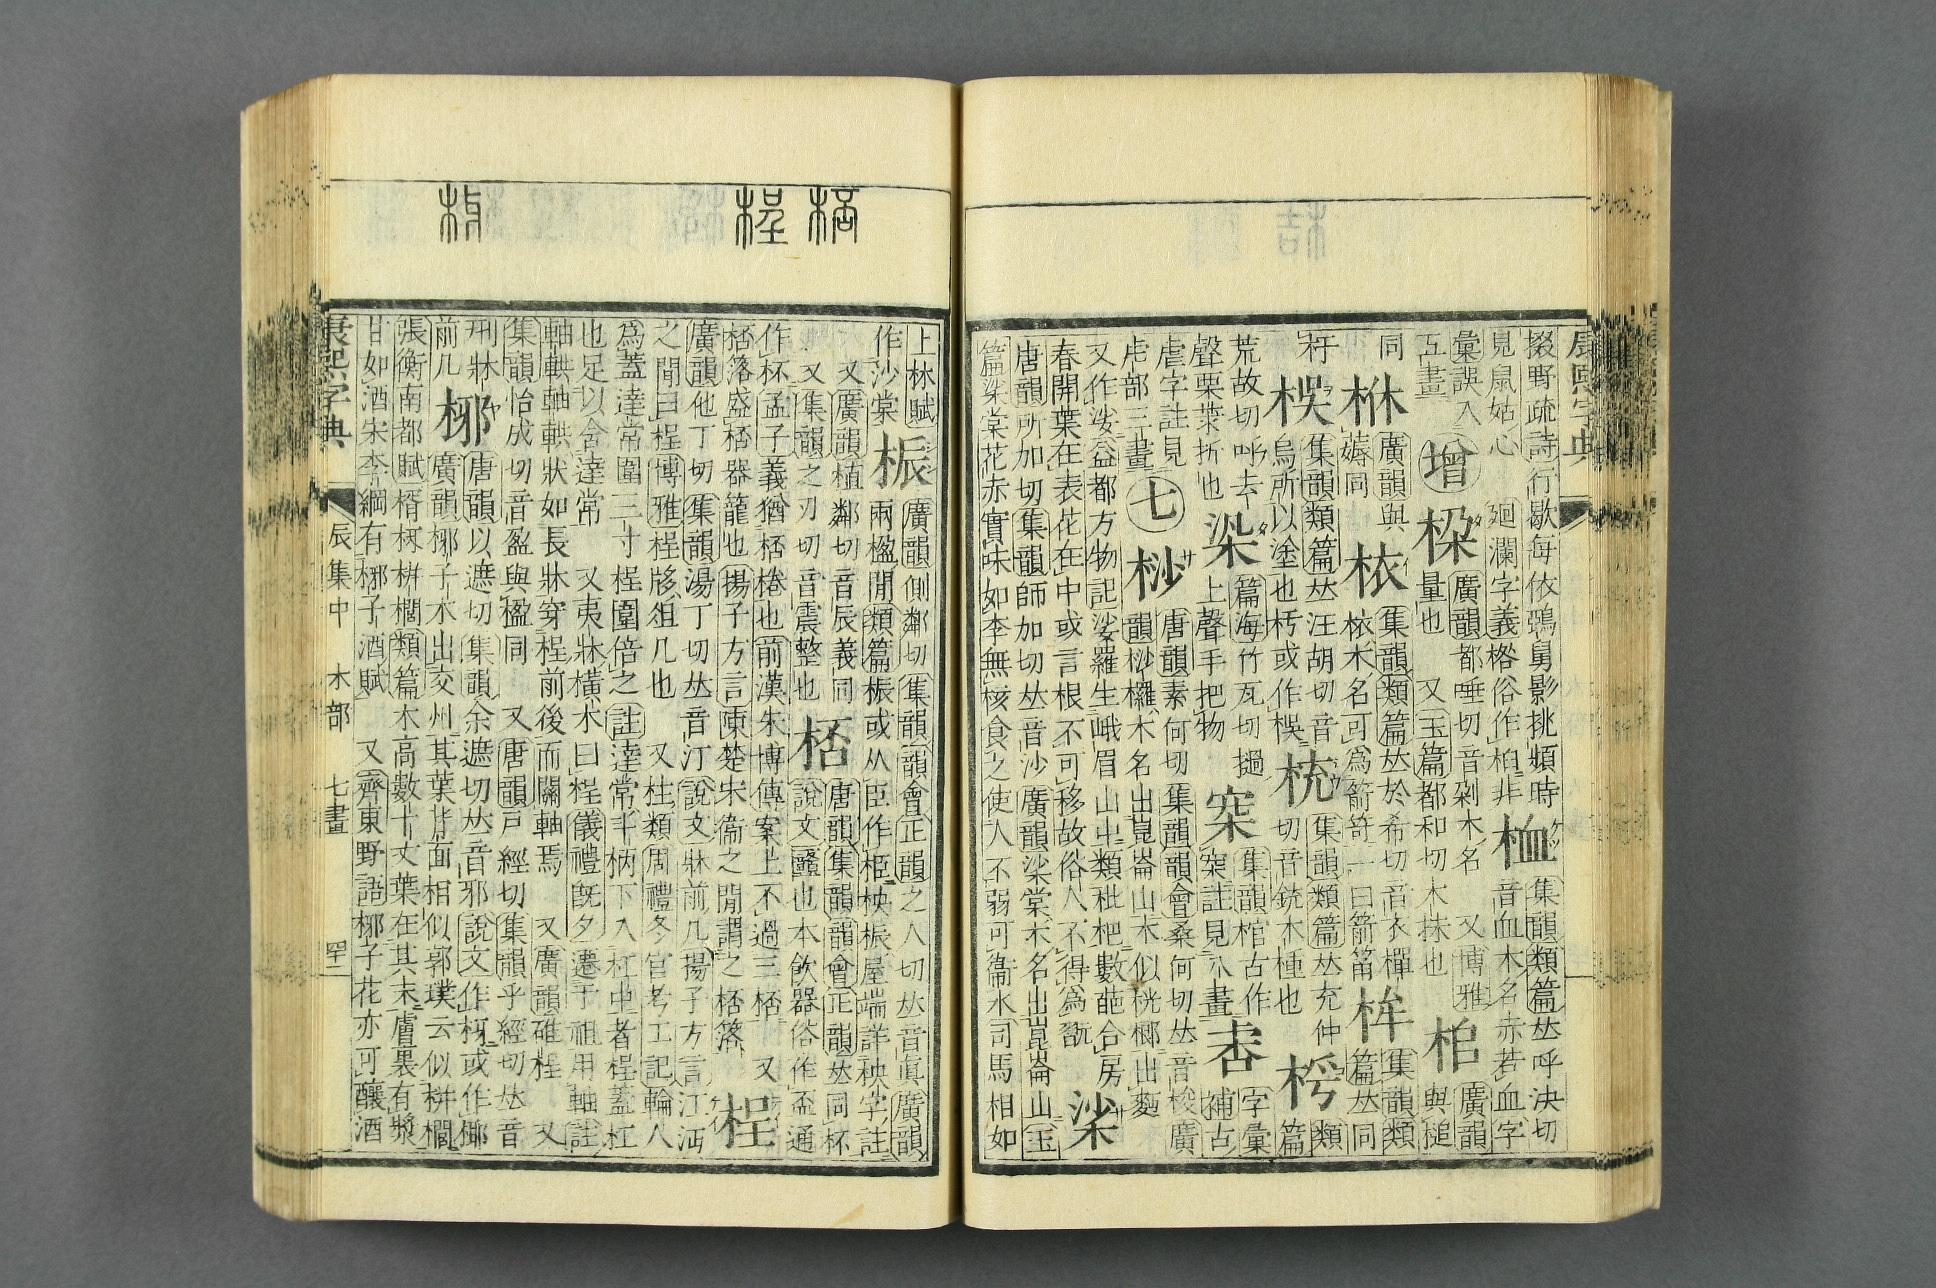 掇野疏詩行歇每依鵶舅影挑頻時 桖 集韻類篇𠀤呼決切
見鼠姑心 廻瀾字義 俗作桕非 音血木名赤若血字
彙誤入 增 廣韻都唾切音剁木名 又博雅 桘 廣韻
五畫 量也 又玉篇都和切木株也 與槌
同 廣韻與 集韻類篇𠀤於希切音衣椫 桙 集韻類
薅同 木名可爲箭笴一曰箭筩 篇𠀤同
杅 集韻類篇𠀤汪胡切音 集韻類篇𠀤充仲 類
烏所以塗也杇或作 切音銃木種也 篇
荒故切呼去 篇海竹瓦切撾 集韻棺古作 字彙
聲栗 折也 上聲手把物 註見八畫 補古
虐字註見 唐韻素何切集韻韻會桑何切𠀤音梭廣
虍部三畫 七 桫 韻桫欏木名出崑崙山木似桄榔出麪
又作娑益都方物記娑羅生峨眉山中類枇杷數葩合房 桬
春開葉在表花在中或言根不可移故俗人不得爲翫
唐韻所加切集韻師加切𠀤音沙廣韻桬棠木名出崑崙山玉
篇桬棠花赤實味如李無核食之使人不弱可禦水司馬相如
上林賦 桭 廣韻側鄰切集韻韻會正韻之人切𠀤音眞廣韻
作沙棠 兩楹閒類篇桭或从臣作 柍桭屋端詳柍字註
又廣韻植鄰切音辰義同 桮 唐韻集韻韻會正韻𠀤同杯
又集韻之刃切音震整也 說文 也本飮器俗作盃通
作杯孟子義猶桮棬也前漢朱博傳案上不過三桮 又 桯
桮落盛桮器籠也揚子方言陳楚宋衞之閒謂之桮落
廣韻他丁切集韻湯丁切𠀤音汀說文牀前几揚子方言江沔
之閒曰桯博雅桯 俎几也 又柱類周禮冬官考工記輪人
爲蓋達常圍三寸桯圍倍之註達常斗柄下入杠中者桯蓋杠
也足以含達常 又夷牀橫木曰桯儀禮旣夕遷于祖用軸註
軸輁軸輁狀如長牀穿桯前後而關軸焉 又廣韻碓桯 又
集韻怡成切音盈與楹同 又唐韻戸經切集韻乎經切𠀤音
𠛬牀 梛 唐韻以遮切集韻余遮切𠀤音邪說文作枒或作椰
前几 廣韻梛子木出交州其葉背面相似郭璞云似栟櫚
張衡南都賦楈枒栟櫚類篇木高數十丈葉在其末膚裏有漿
甘如酒宋李綱有梛子酒賦 又齊東野語梛子花亦可釀酒
康熙字典 辰集中 木部 七畫